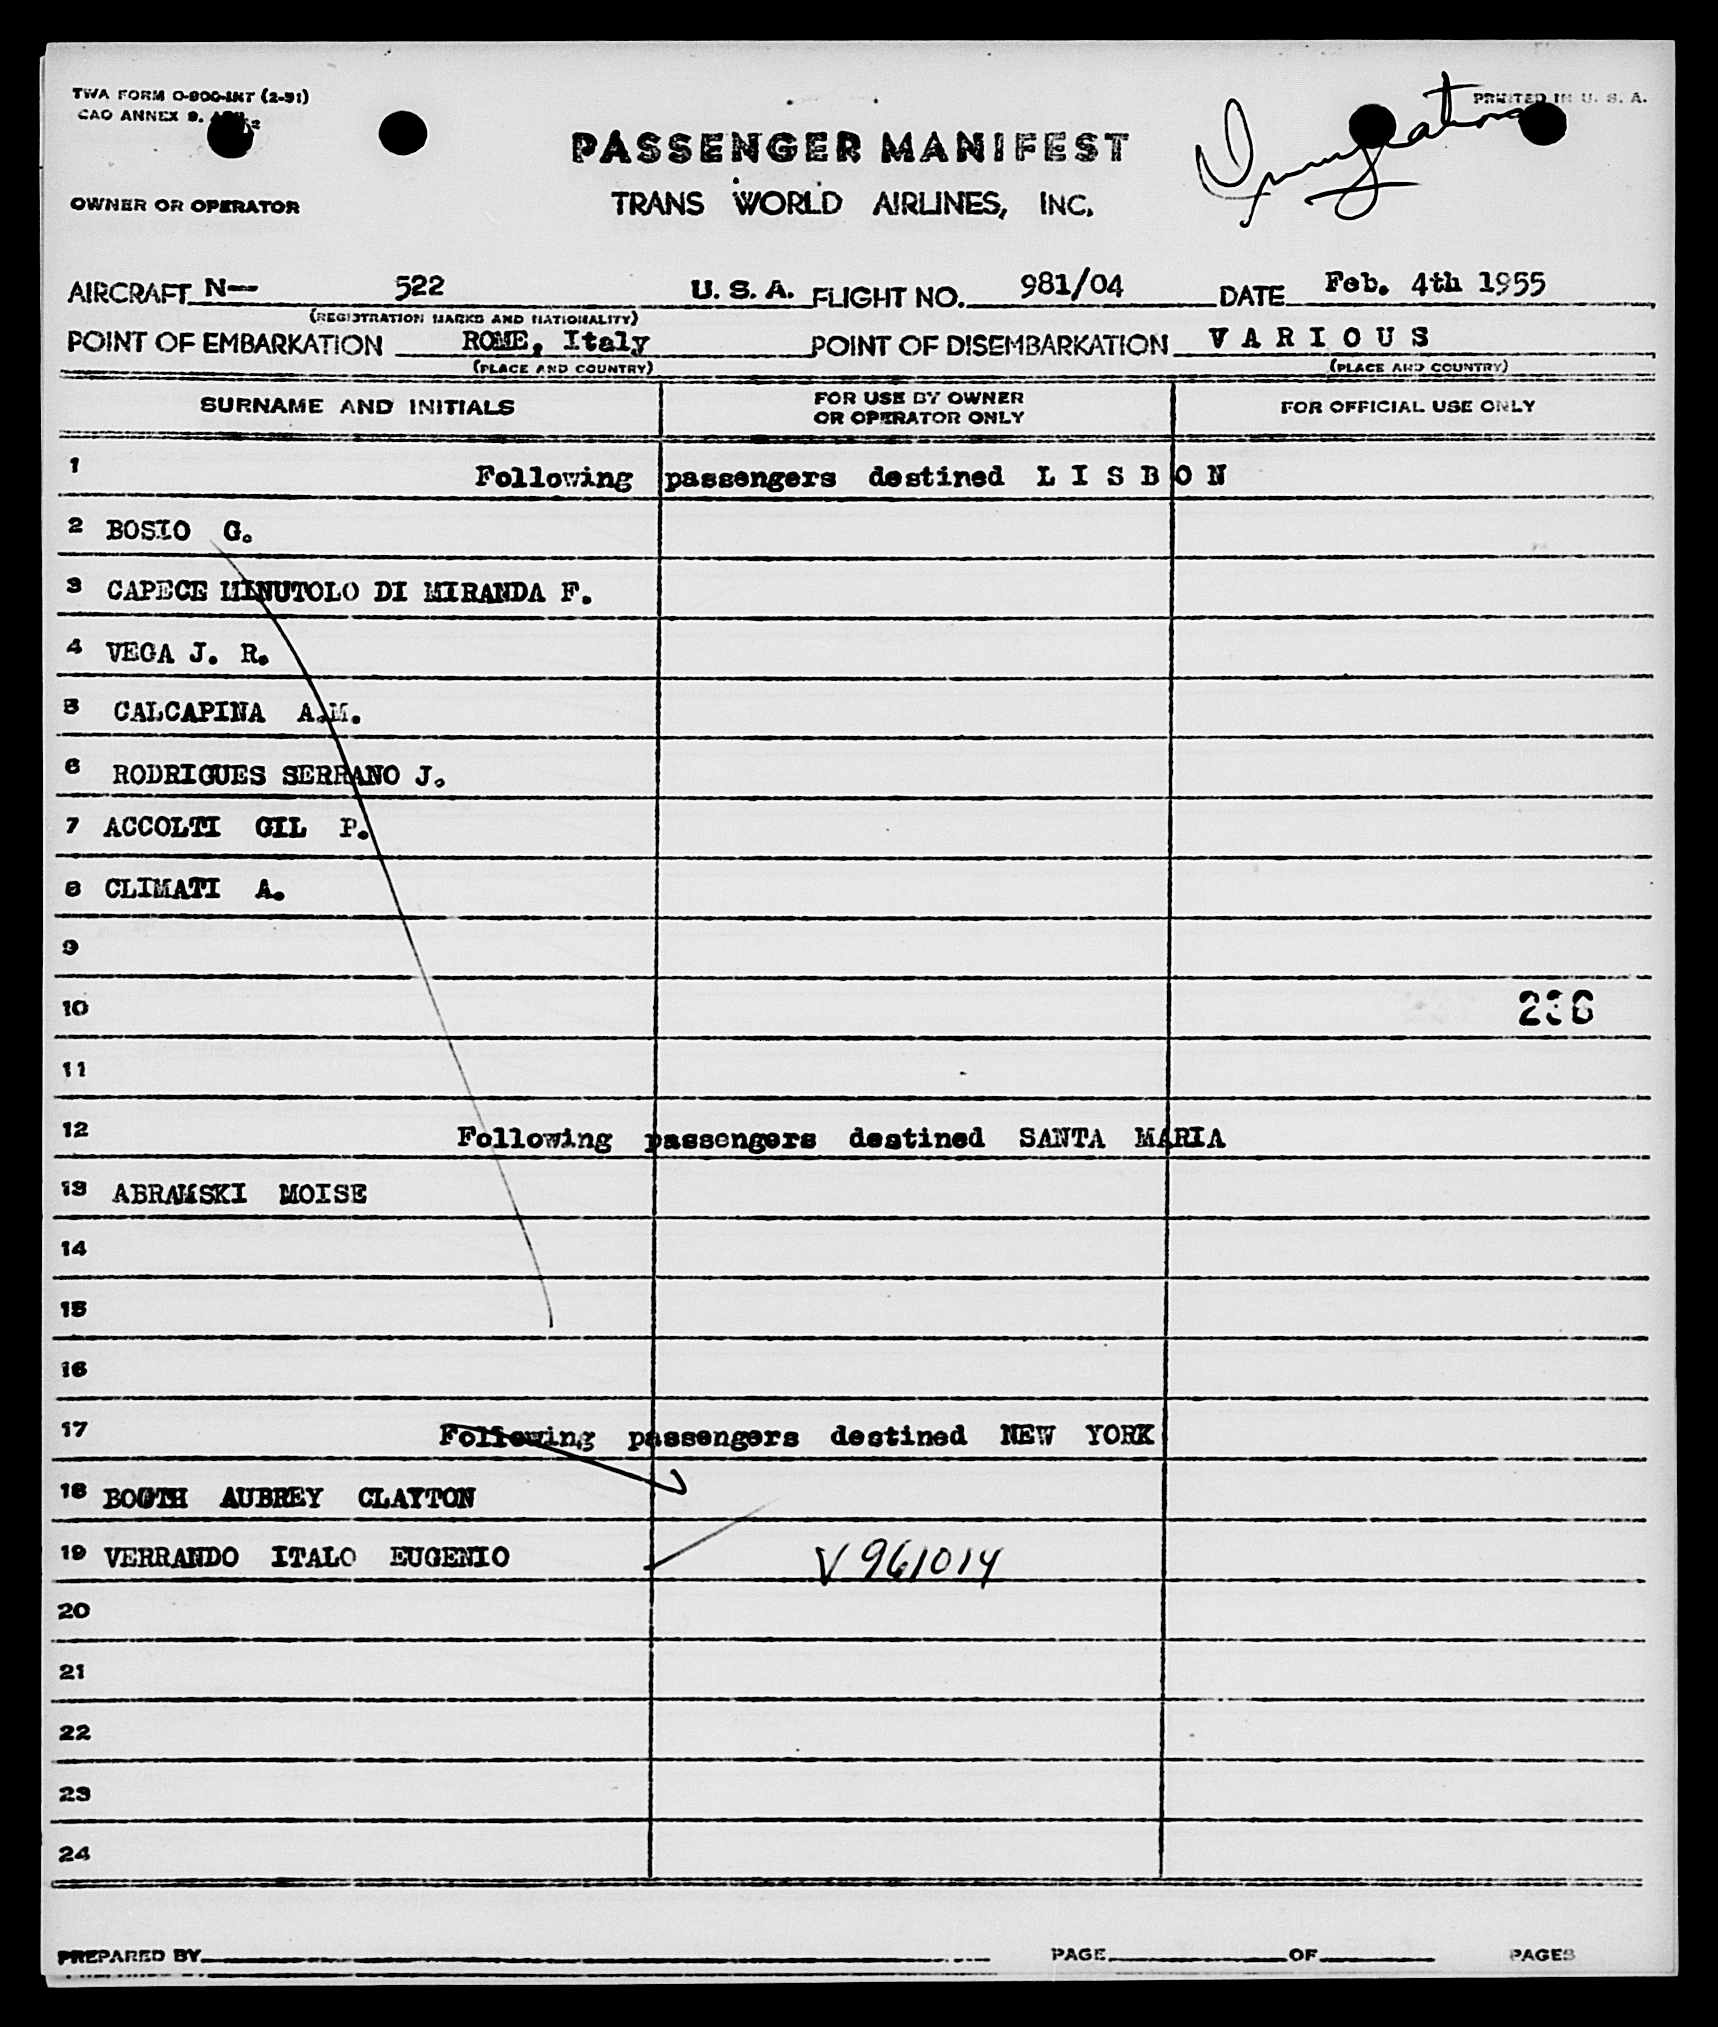 TWA FORM O-900-INT (2-51)
PRINTED IN U. S. A.
CAO ANNEX 9.
Immigration
PASSENGER MANIFEST
OWNER OR OPERATOR
TRANS WORLD AIRLINES, INC.
AIRCRAFT N— 522 U. S. A. FLIGHT NO. 981/04 DATE Feb. 4th 1955
(REGISTRATION MARKS AND NATIONALITY)
POINT OF EMBARKATION ROME, Italy POINT OF DISEMBARKATION V A R I O U S
(PLACE AND COUNTRY) (PLACE AND COUNTRY)
SURNAME AND INITIALS FOR USE BY OWNER OR OPERATOR ONLY FOR OFFICIAL USE ONLY
1 Following passengers destined L I S B O N
2 BOSIO G.
3 CAPECE MINUTOLO DI MIRANDA F.
4 VEGA J. R.
5 CALCAPINA A.M.
6 RODRIGUES SERRANO J.
7 ACCOLTI GIL P.
8 CLIMATI A.
9
10 236
11
12 Following passengers destined SANTA MARIA
13 ABRAMSKI MOISE
14
15
16
17 Following passengers destined NEW YORK
18 BOOTH AUBREY CLAYTON
19 VERRANDO ITALO EUGENIO V961014
20
21
22
23
24
PREPARED BY PAGE OF PAGES